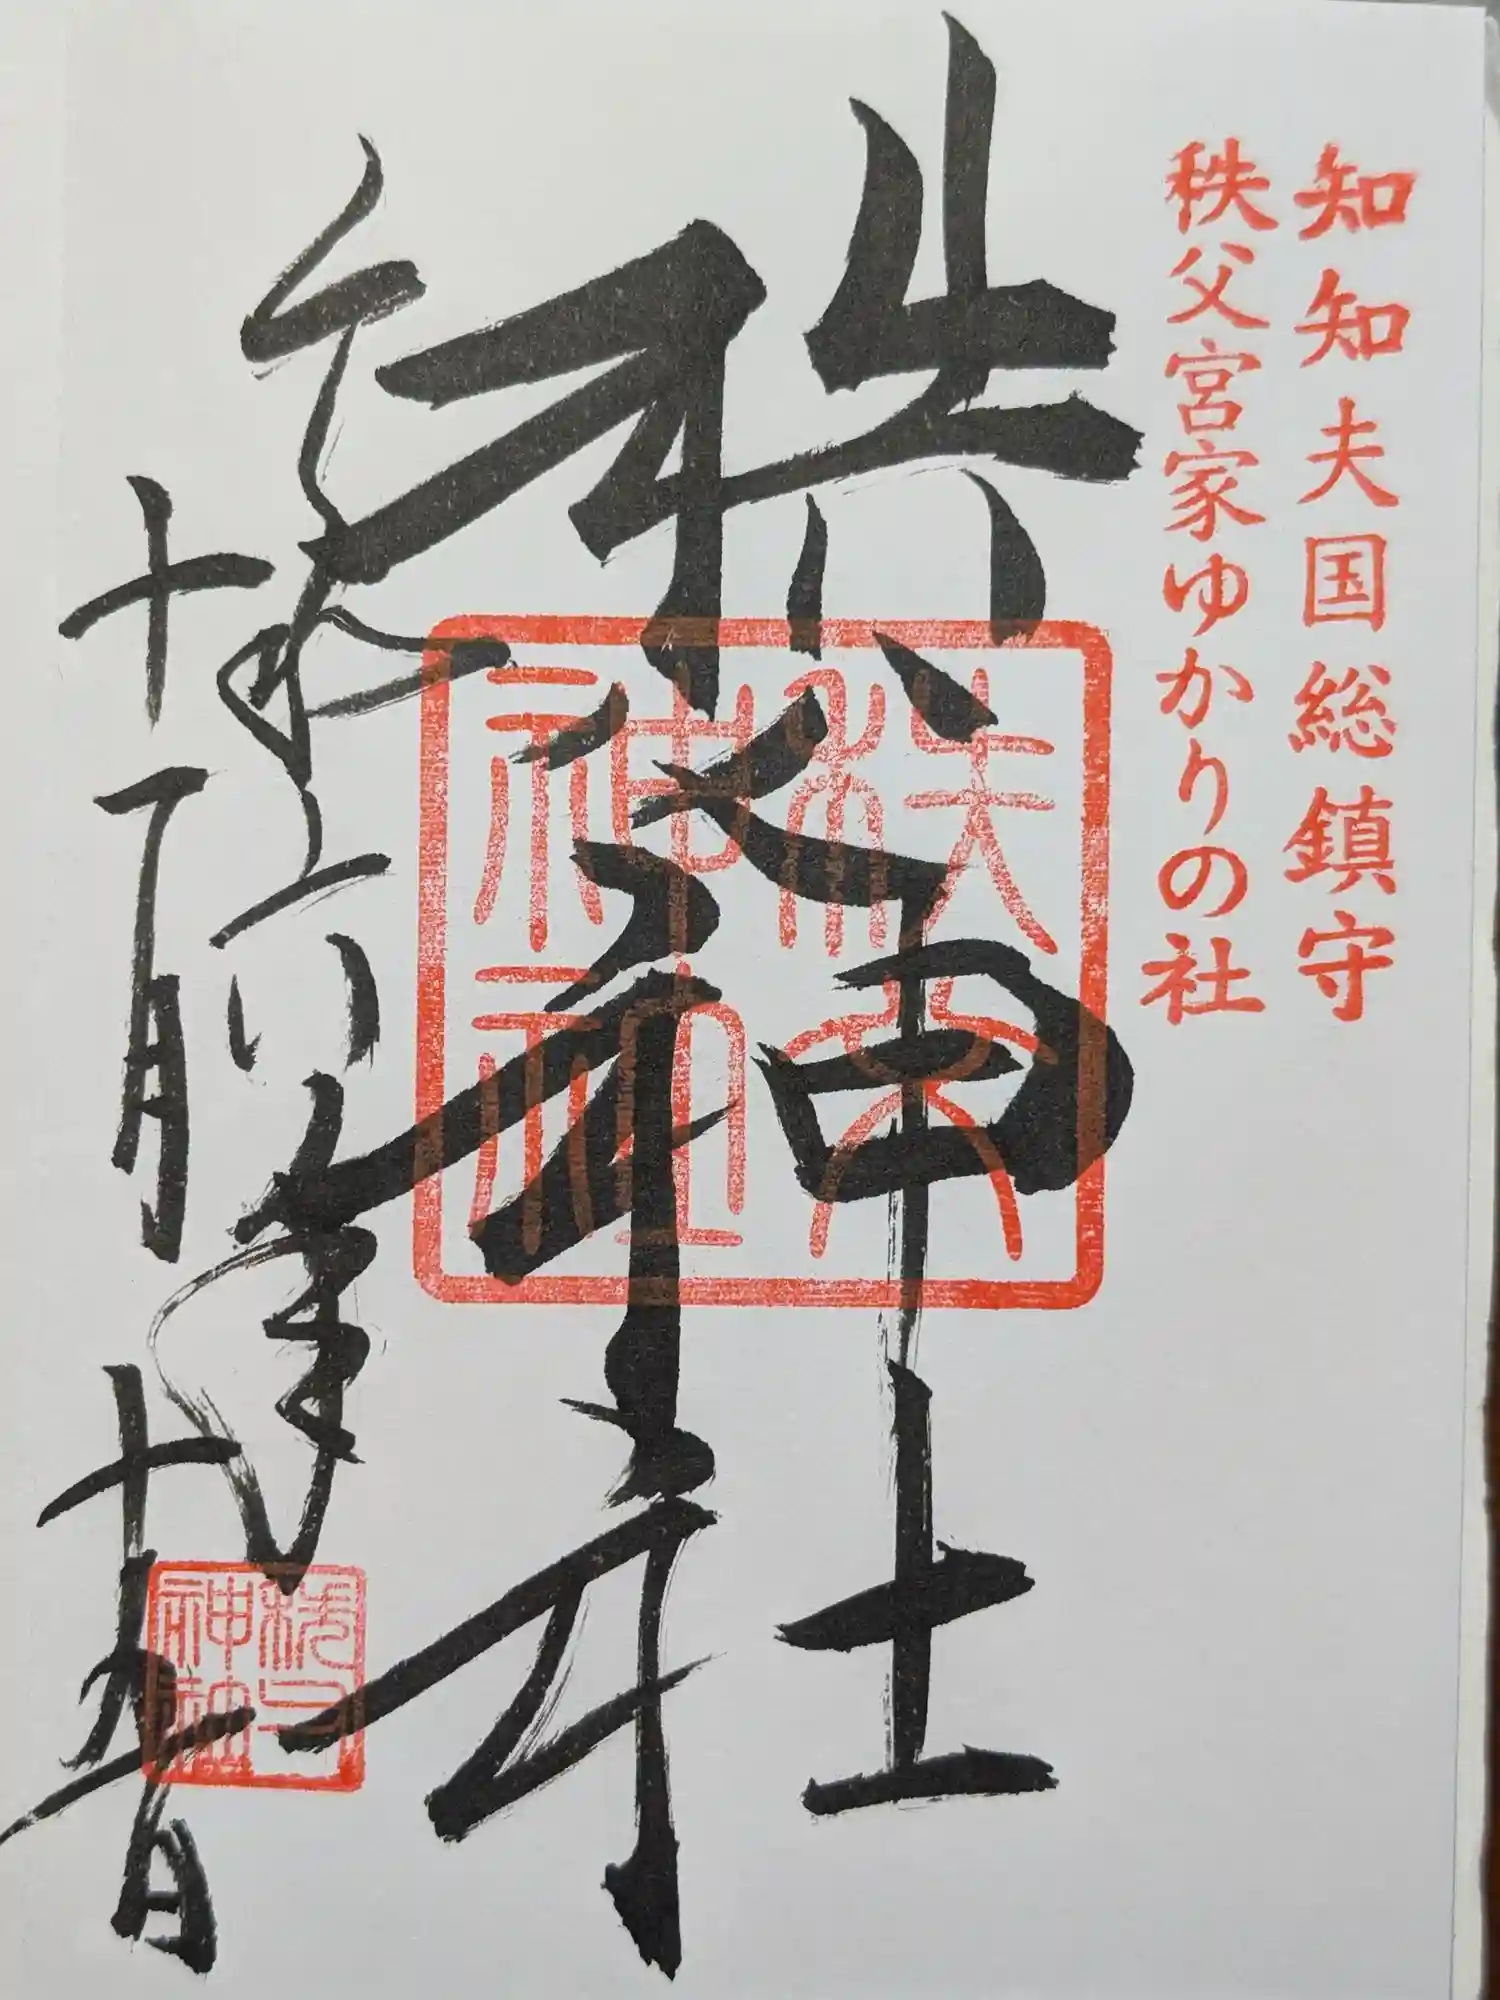 知知夫国総鎮守
秩父宮家ゆかりの社
秩父神社
秩父神社
令和六年
十一月十五日